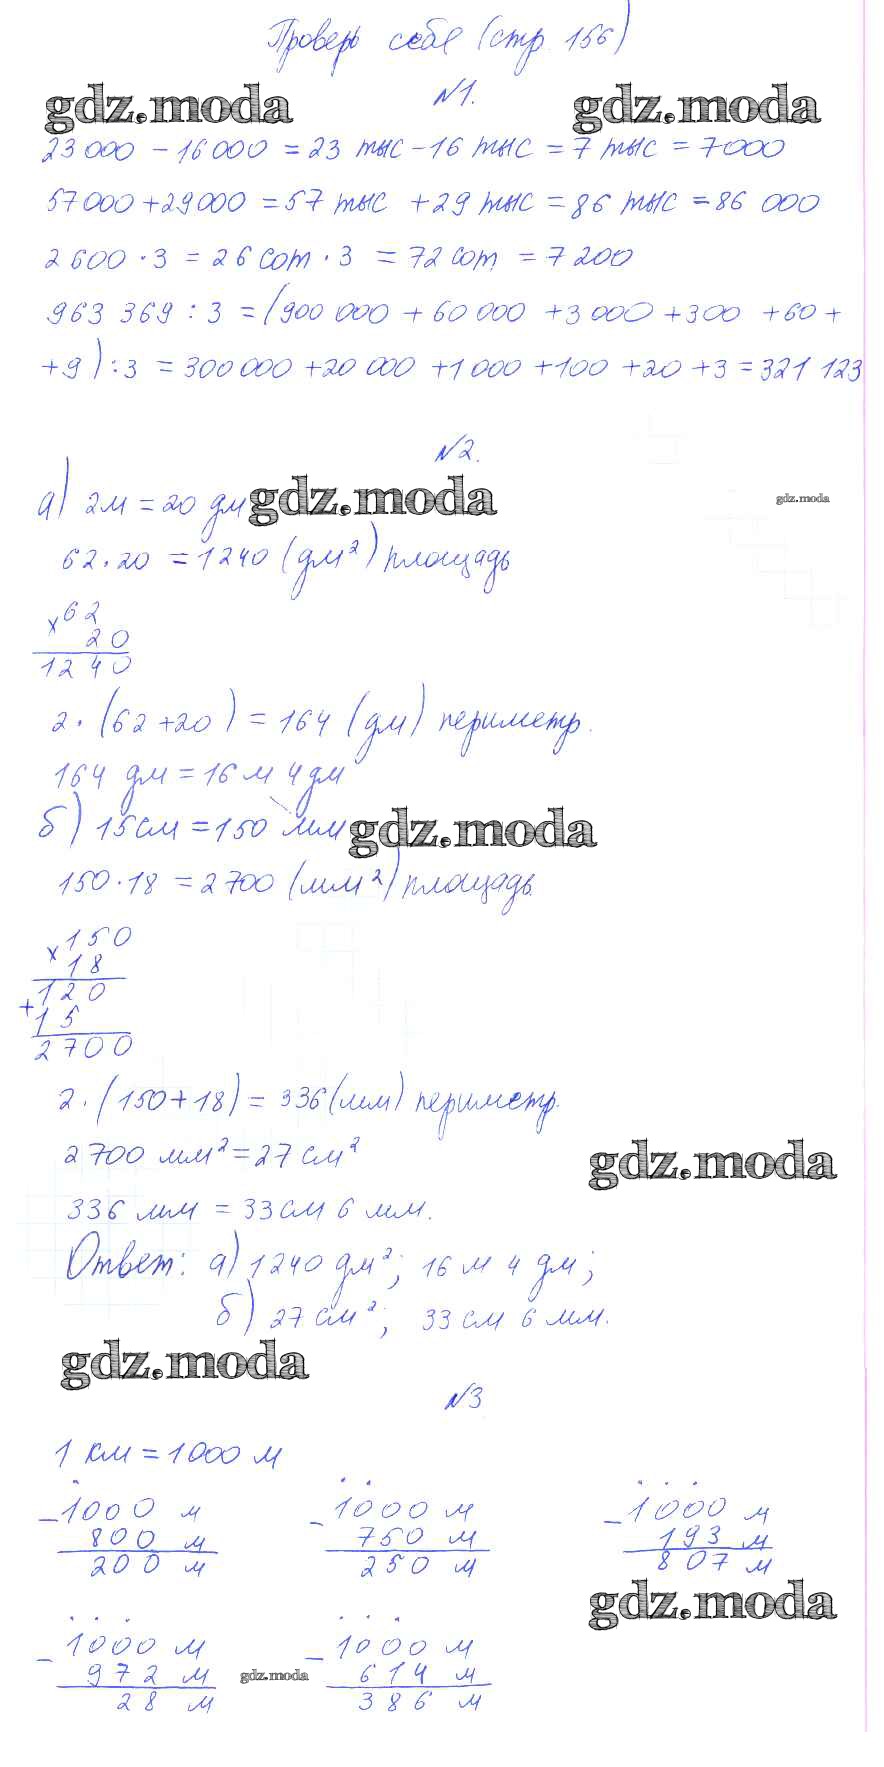 Проверь себя (стр. 156)
№1.
gdz.moda gdz.moda
23 000 - 16 000 = 23 тыс - 16 тыс = 7 тыс = 7000
57000 + 29000 = 57 тыс + 29 тыс = 86 тыс = 86 000
2 600 · 3 = 26 сот · 3 = 72 сот = 7 200
963 369 : 3 = (900 000 + 60 000 + 3 000 + 300 + 60 +
+ 9) : 3 = 300 000 + 20 000 + 1 000 + 100 + 20 + 3 = 321 123
№2.
а) 2м = 20 дм gdz.moda gdz.moda
62 · 20 = 1240 (дм²) площадь
× 62
20
1240
2 · (62 + 20) = 164 (дм) периметр.
164 дм = 16 м 4 дм
б) 15 см = 150 мм gdz.moda
150 · 18 = 2 700 (мм²) площадь.
× 150
18
+ 120
15
2700
2 · (150 + 18) = 336 (мм) периметр.
2 700 мм² = 27 см²
gdz.moda
336 мм = 33 см 6 мм.
Ответ: а) 1240 дм²; 16 м 4 дм;
б) 27 см²; 33 см 6 мм.
gdz.moda
№3
1 км = 1000 м
- 1000 м - 1000 м - 1000 м
800 м 750 м 193 м
200 м 250 м 807 м
gdz.moda
- 1000 м - 1000 м
972 м gdz.moda 614 м
28 м 386 м